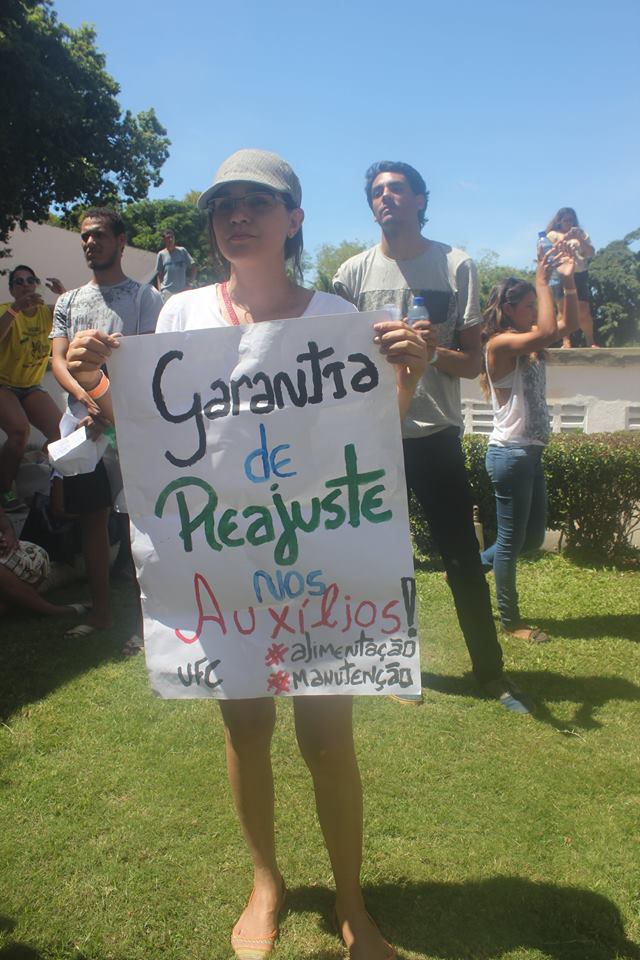 Garantia
de
Reajuste
nos
Auxílios!
#alimentação
UFC #manutenção